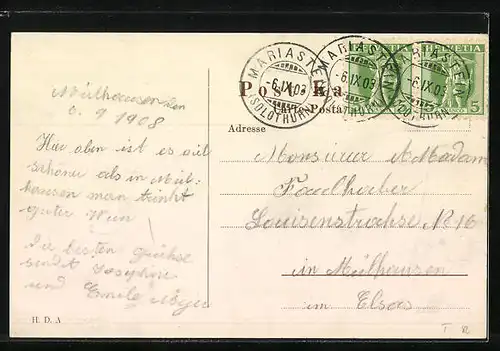 Post Ka
Carte Posta
Adresse
MARIASTEIN
-6.IX.08
(SOLOTHURN)
MARIASTEIN
-6.IX.08
(SOLOTHURN)
HELVETIA
HELVETIA
5
Mülhausen den
6. 9 1908
Hier oben ist es viel
schöner als in Mül-
hausen man trinkt
guter Wein
Die besten Grüsse
sendt Josephine
und Emil Meyer
Monsieur & Madam
Faulhaber
Louisenstrahse № 16
in Mülhausen
im Elsas
H. D. A